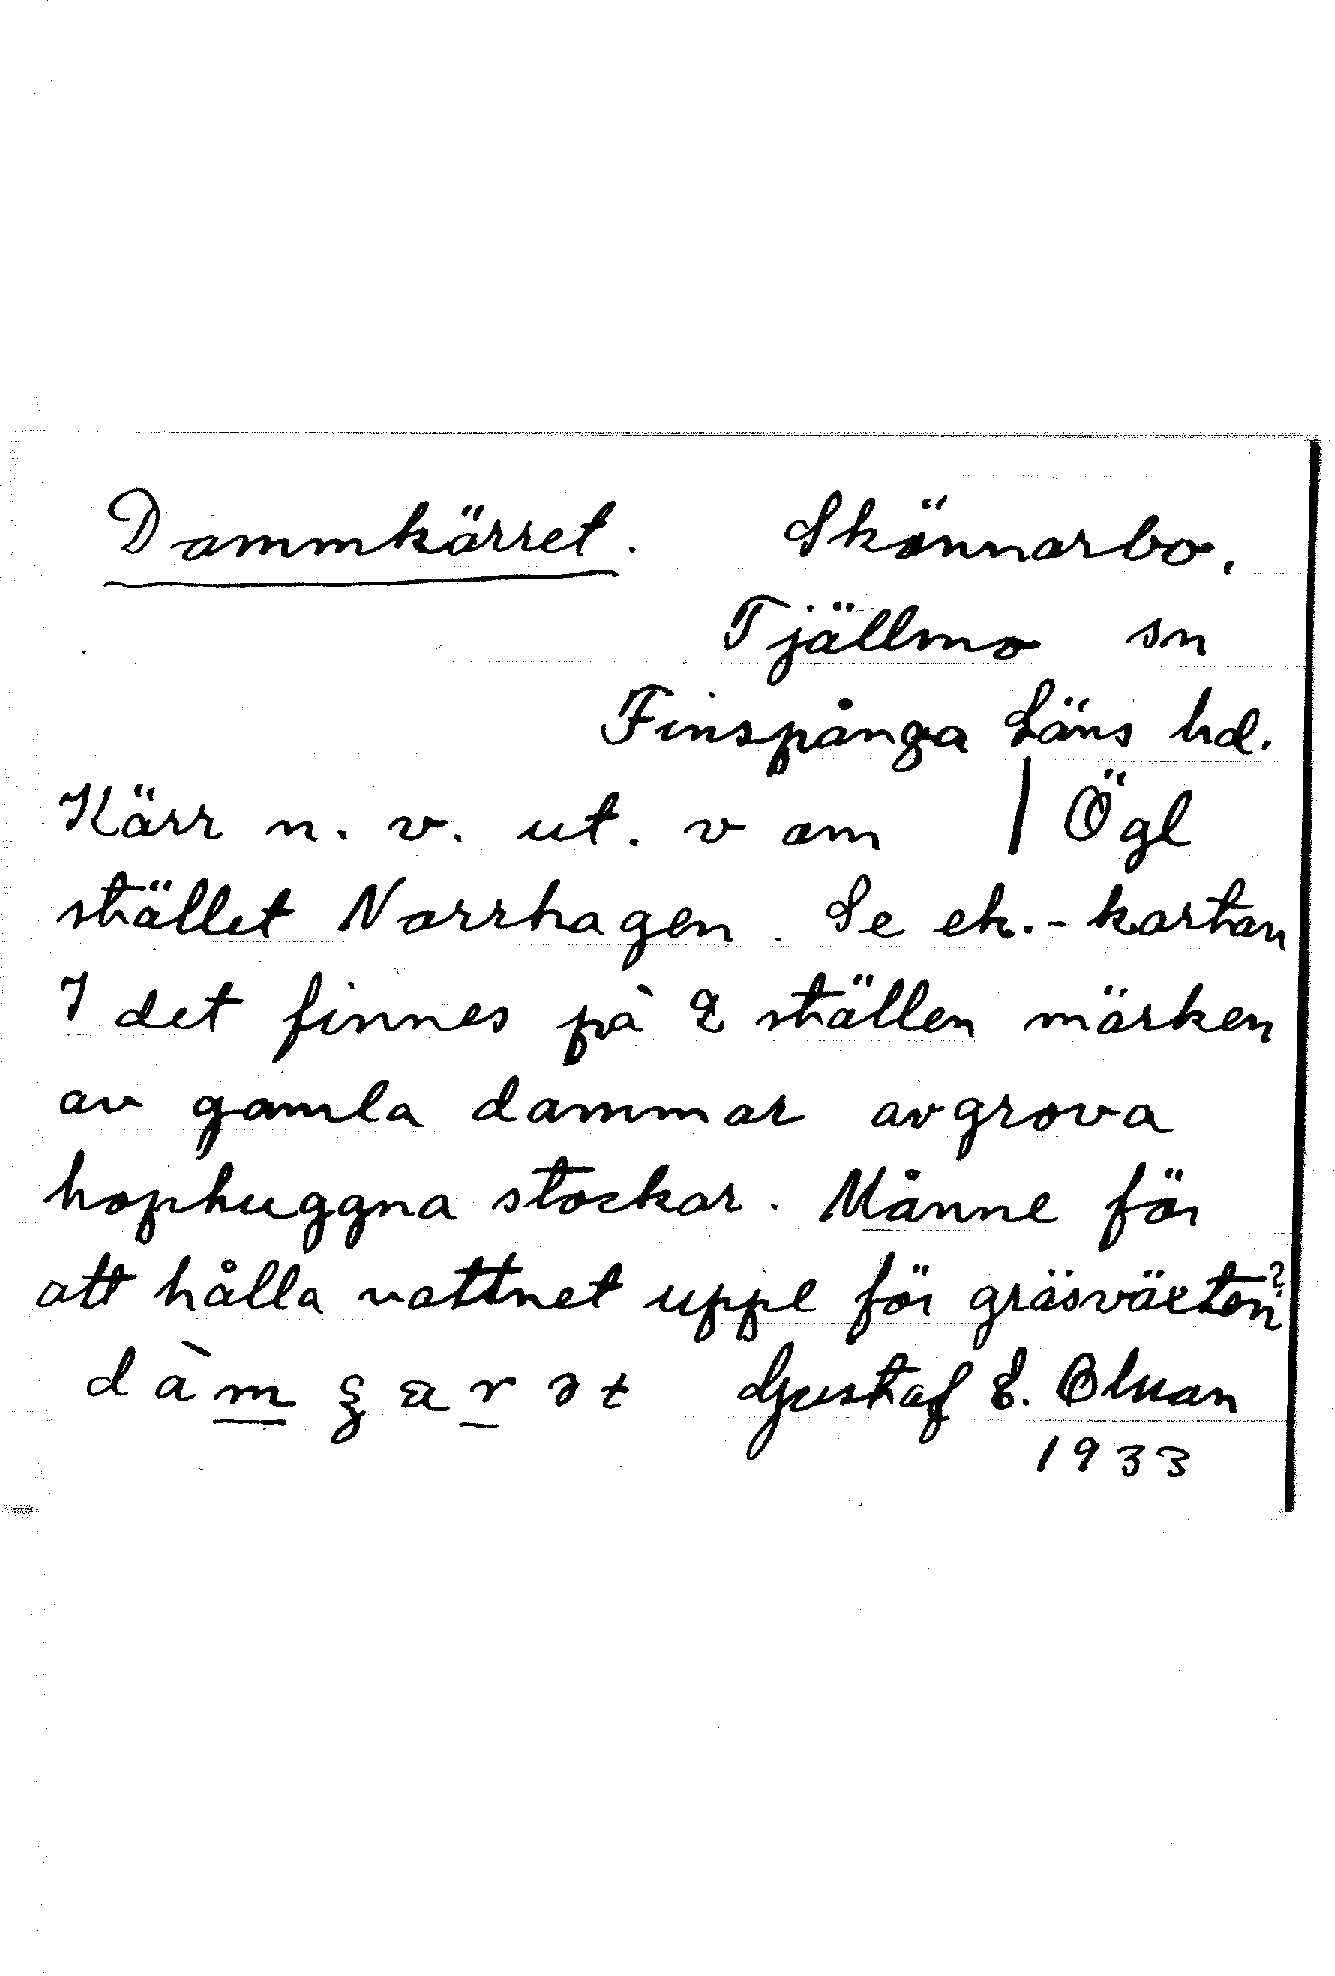 Dammkärret. Skönnarbo.
Tjällmo sn
Finspånga Läns hd.
Kärr n. v. ut. v om | Ögl
stället Norrhagen. Se ek.-kartan
I det finnes på 2 ställen märken
av gamla dammar av grova
hophuggna stockar. Månne för
att hålla vattnet uppe för gräsväxten?
dàm ɕærət Gustaf E.
1933